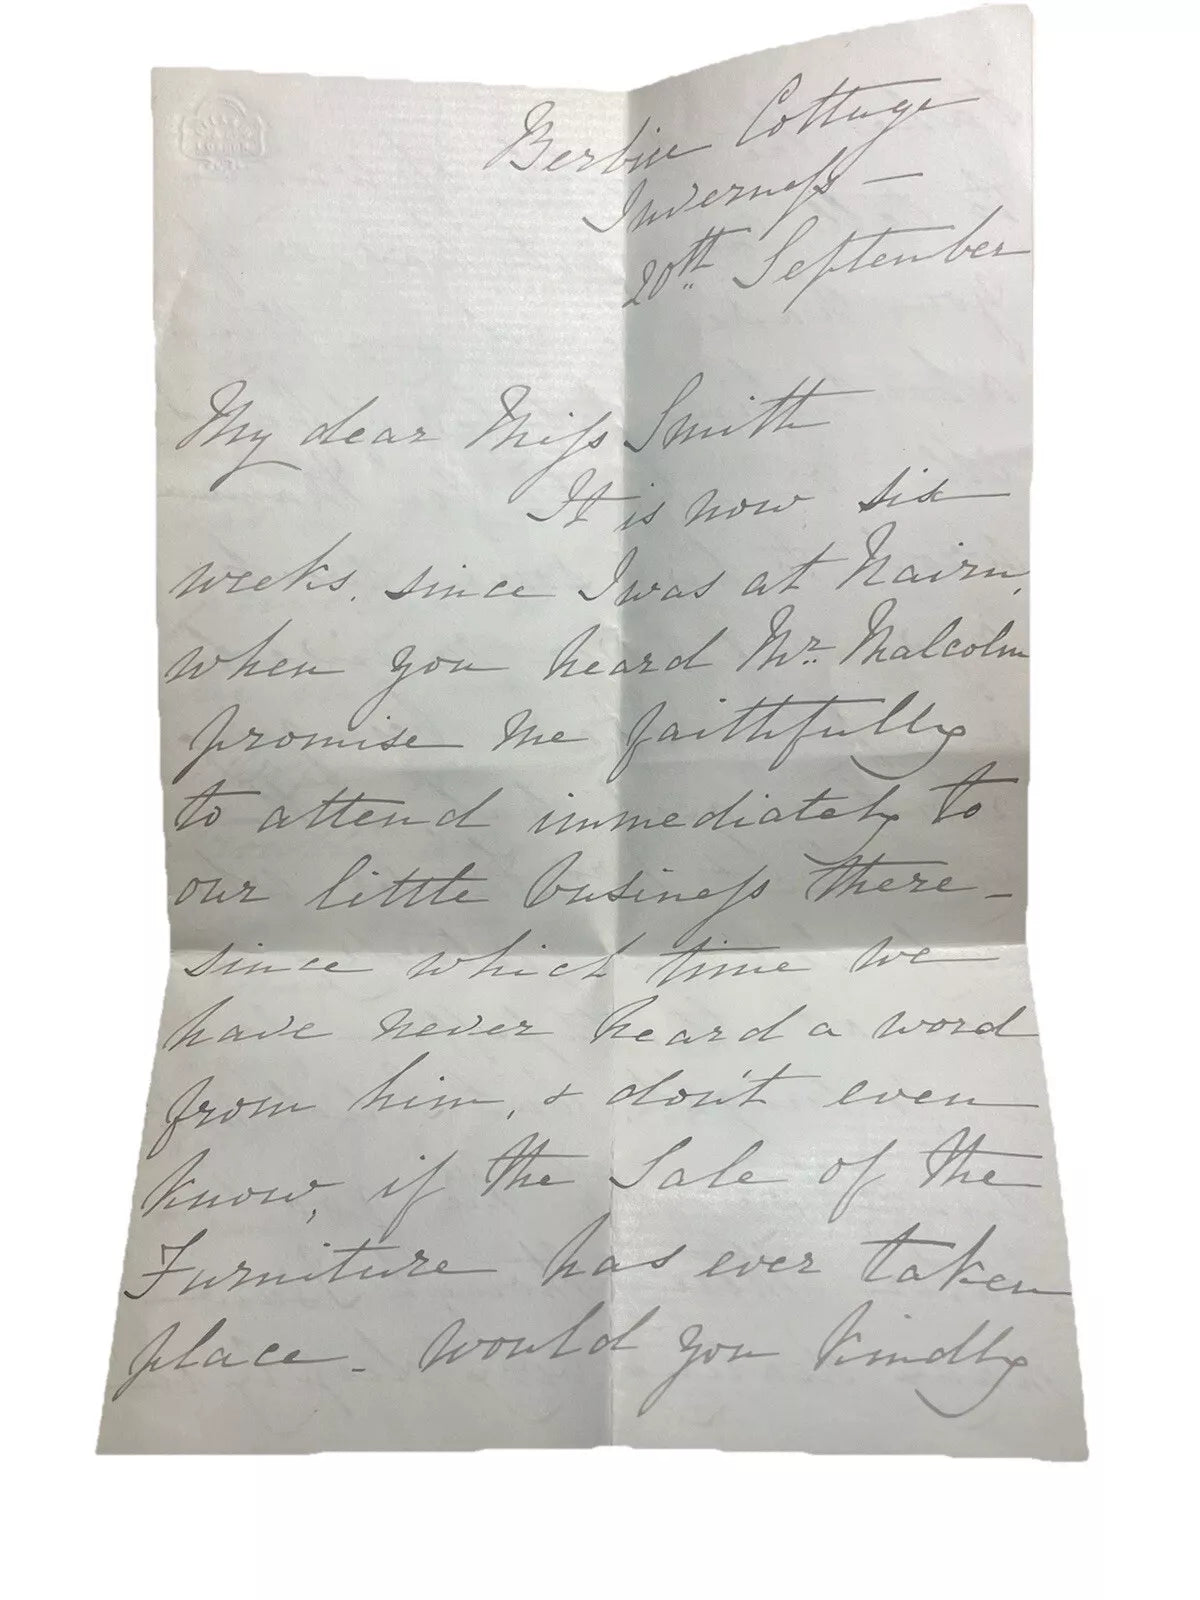 Berbice Cottage
Inverness —
20th September
My dear Miss Smith
It is now six
weeks. since I was at Nairn,
when you heard Mr. Malcolm
promise me faithfully
to attend immediately to
our little business there –
since which time we
have never heard a word
from him, & don't even
know, if the Sale of the
Furniture has ever taken
place – would you kindly